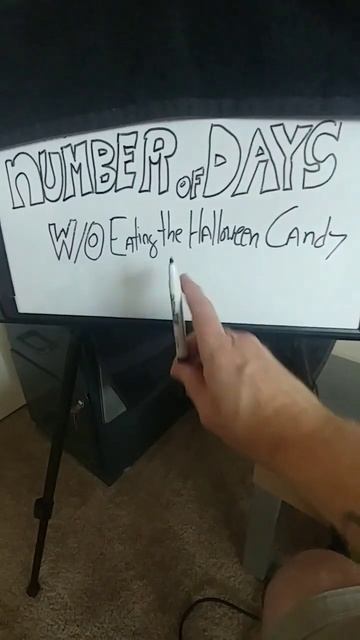 NUMBER OF DAYS
W/O Eating the Halloween Candy